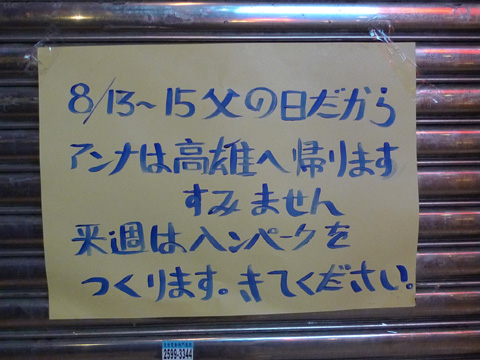 8/13~15父の日だから
アンナは高雄へ帰ります
すみません
来週はハンペークを
つくります。きてください。
2599-3344